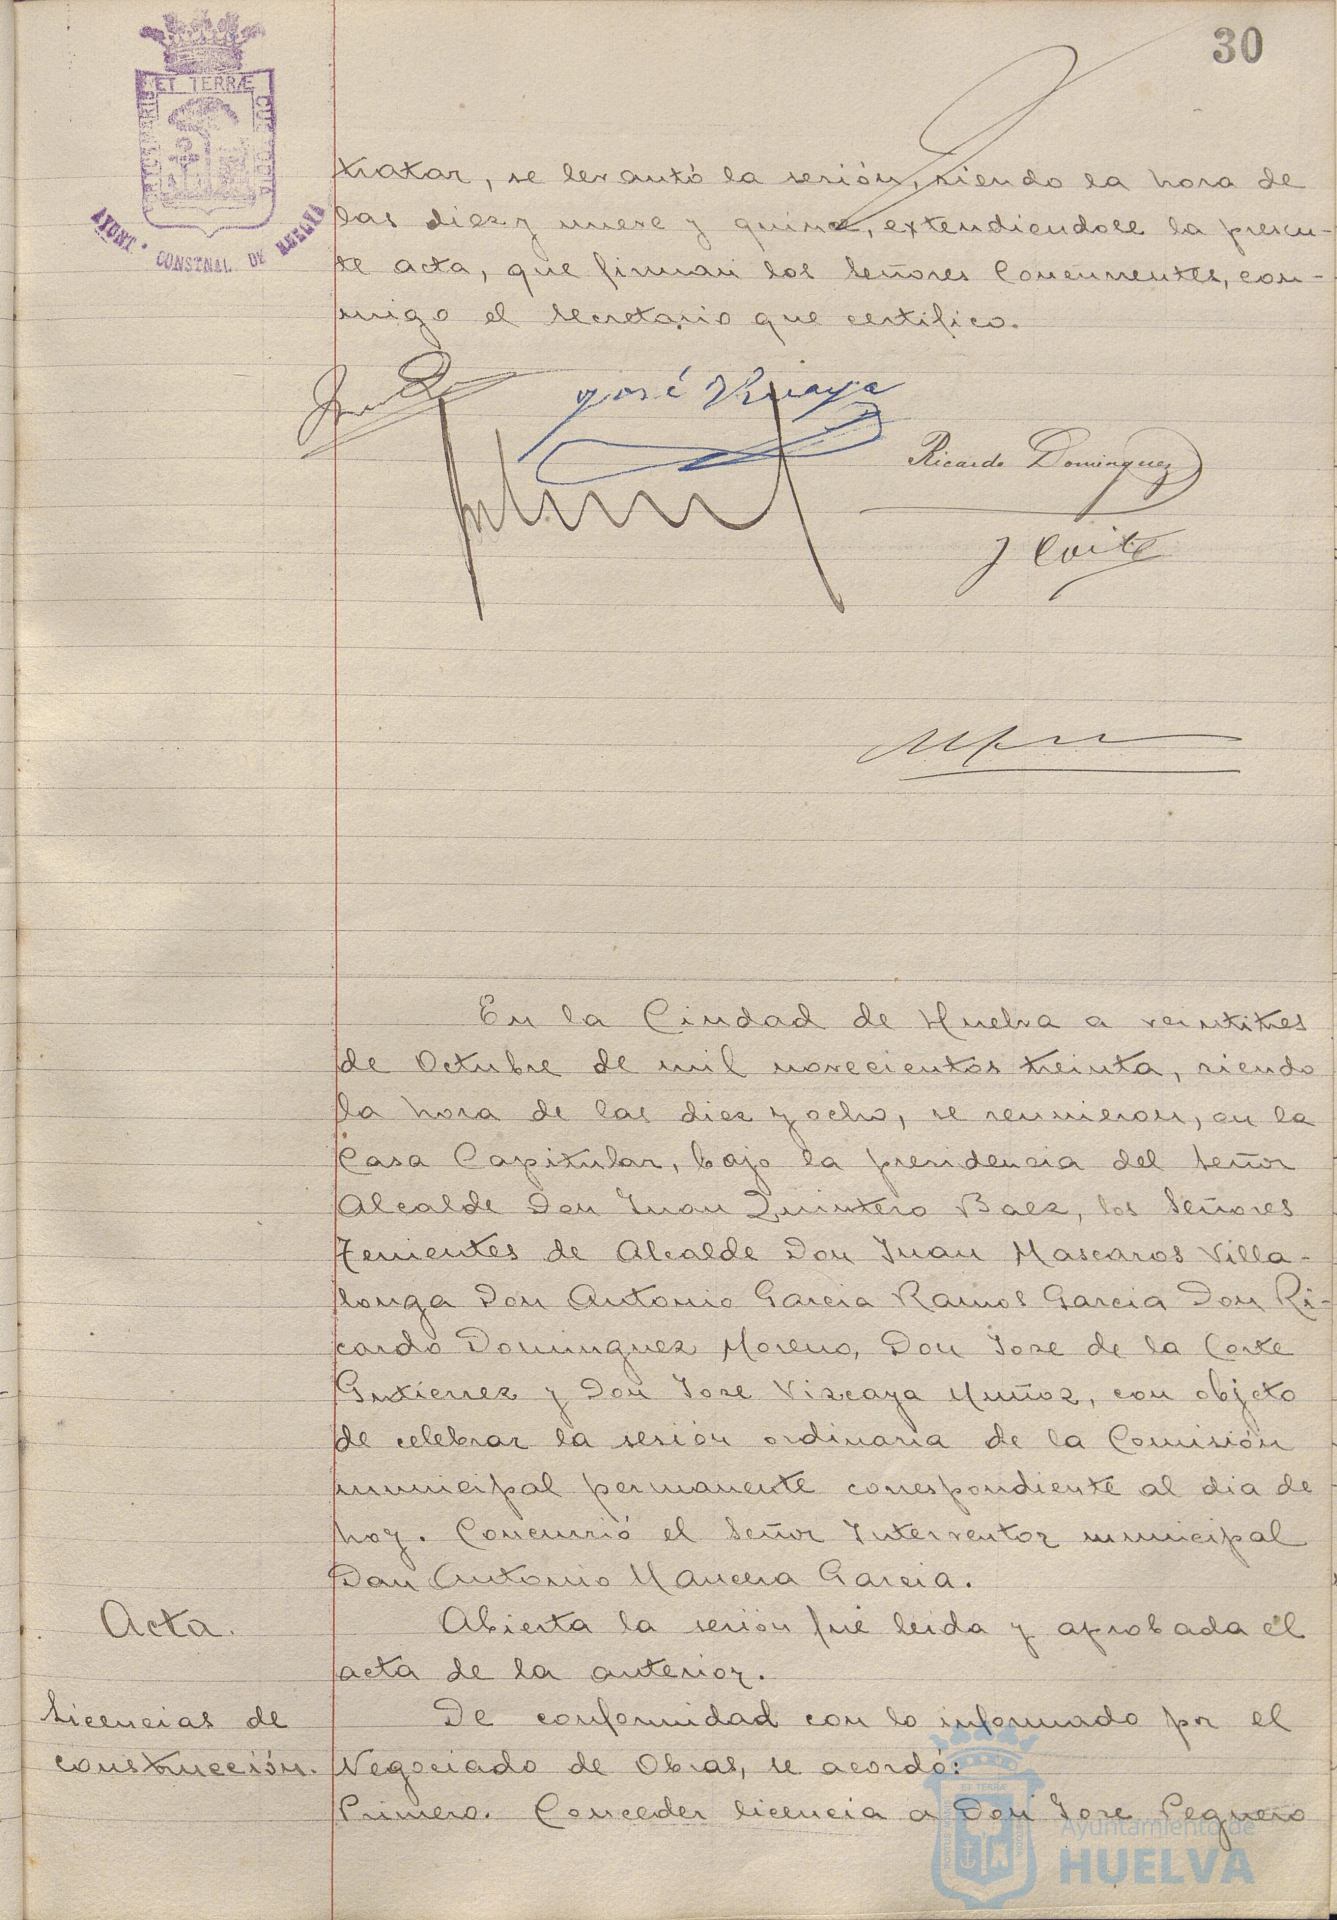 30
PORTUS MARIS ET TERRÆ CUSTODIA
AYUNT. CONSTNAL DE HUELVA
tratar, se levantó la sesión, siendo la hora de
las diez y nueve y quince, extendiendose la presen-
te acta, que firman los Señores Concurrentes, con-
migo el secretario que certifico.
José Vizcaya
Ricardo Dominguez
J Corte
En la Ciudad de Huelva a veintitres
de Octubre de mil novecientos treinta, siendo
la hora de las diez y ocho, se reunieron, en la
Casa Capitular, bajo la presidencia del Señor
Alcalde Don Juan Quintero Baez, los Señores
Tenientes de Alcalde Don Juan Mascaros Villa-
longa Don Antonio Garcia Ramos Garcia Don Ri-
cardo Dominguez Moreno, Don Jose de la Corte
Gutierrez y Don Jose Vizcaya Muñoz, con objeto
de celebrar la sesión ordinaria de la Comisión
municipal permanente correspondiente al dia de
hoy. Concurrió el Señor Interventor municipal
Don Antonio Mancera Garcia.
Acta.
Abierta la sesión fué leida y aprobada el
acta de la anterior.
Licencias de
construcción.
De conformidad con lo informado por el
Negociado de Obras, se acordó:
Primero. Conceder licencia a Don Jose Peguero
Ayuntamiento de
HUELVA